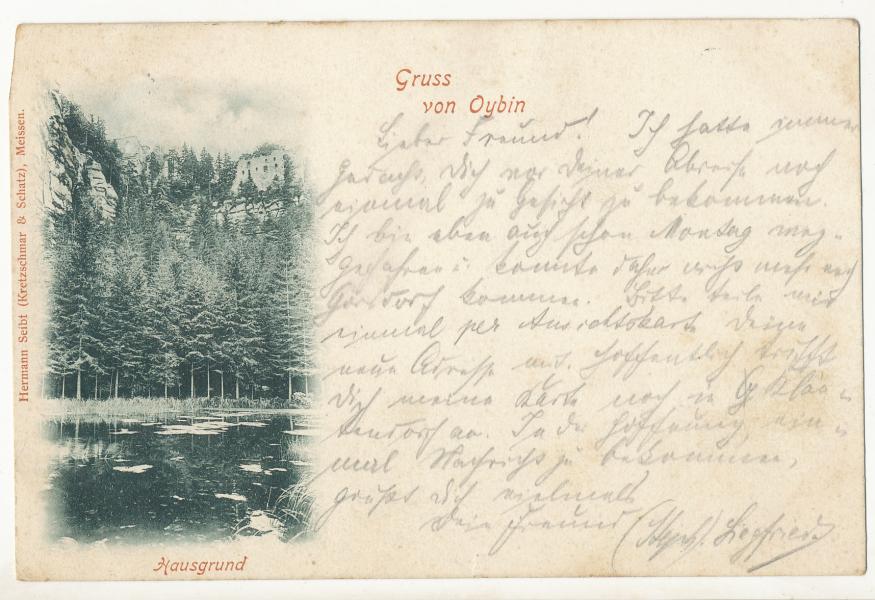 Gruss
von Oybin
Lieber Freund! Ich hatte immer
gedacht, Dich vor Deiner Abreise noch
einmal zu Gesicht zu bekommen.
Ich bin eben auch schon Montag weg-
gefahren u. konnte daher nicht mehr nach
kommen. Bitte teile mir
einmal per Ansichtskarte Deine
neue Adresse mit. Hoffentlich trifft
Dich meine Karte noch in
an. In der Hoffnung, ein-
mal Nachricht zu bekommen,
grüßt Dich vielmals
Dein Freund Siegfried
Hausgrund
Hermann Seibt (Kretzschmar & Schatz), Meissen.